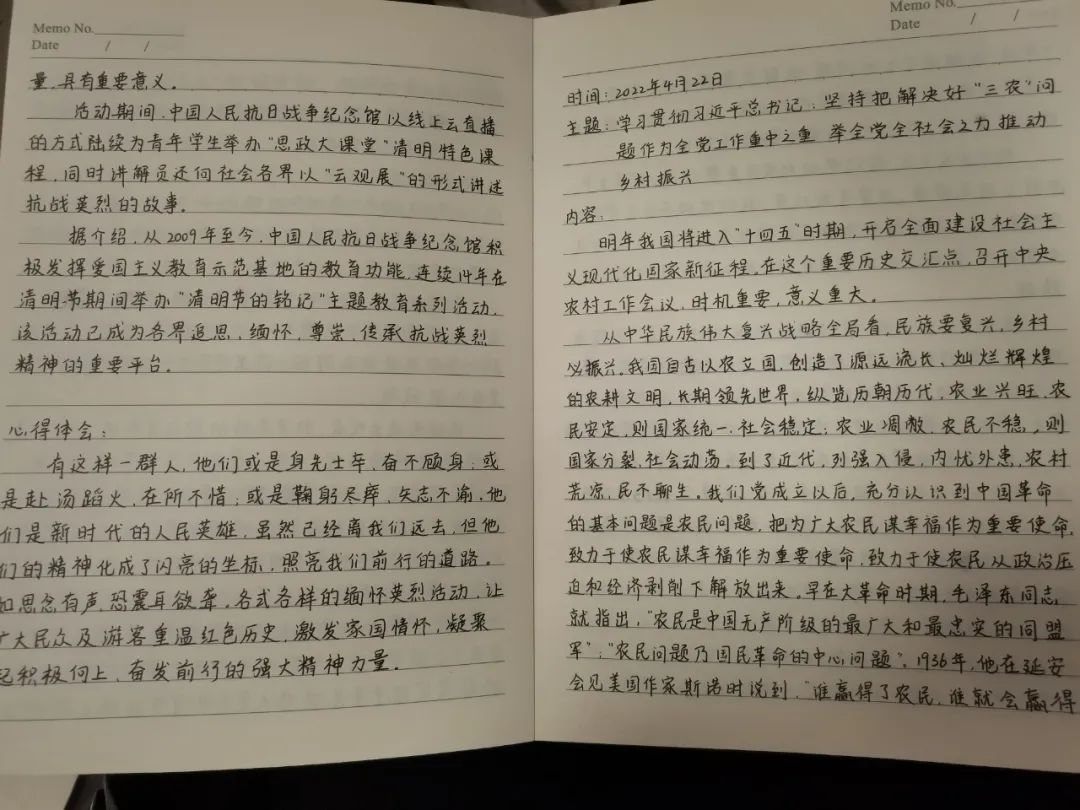 Memo No.
Date / /
量,具有重要意义。
活动期间,中国人民抗日战争纪念馆以线上云直播
的方式陆续为青年学生举办"思政大课堂"清明特色课
程,同时讲解员还向社会各界以"云观展"的形式讲述
抗战英烈的故事。
据介绍,从2009年至今,中国人民抗日战争纪念馆积
极发挥爱国主义教育示范基地的教育功能,连续14年在
清明节期间举办"清明节的铭记"主题教育系列活动,
该活动已成为各界追思、缅怀、尊崇、传承抗战英烈
精神的重要平台。
心得体会:
有这样一群人,他们或是身先士卒,奋不顾身;或
是赴汤蹈火,在所不惜;或是鞠躬尽瘁,矢志不渝,他
们是新时代的人民英雄,虽然已经离我们远去,但他
们的精神化成了闪亮的坐标,照亮我们前行的道路。
如思念有声,恐震耳欲聋。各式各样的缅怀英烈活动,让
广大民众及游客重温红色历史,激发家国情怀,凝聚
起积极向上,奋发前行的强大精神力量。
Memo No.
Date / /
时间:2022年4月22日
主题:学习贯彻习近平总书记:坚持把解决好"三农"问
题作为全党工作重中之重 举全党全社会之力推动
乡村振兴
内容:
明年我国将进入"十四五"时期,开启全面建设社会主
义现代化国家新征程,在这个重要历史交汇点,召开中央
农村工作会议,时机重要,意义重大。
从中华民族伟大复兴战略全局看,民族要复兴,乡村
必振兴。我国自古以农立国,创造了源远流长、灿烂辉煌
的农耕文明,长期领先世界,纵览历朝历代,农业兴旺、农
民安定,则国家统一、社会稳定;农业凋敝、农民不稳,则
国家分裂,社会动荡。到了近代,列强入侵,内忧外患,农村
荒凉,民不聊生。我们党成立以后,充分认识到中国革命
的基本问题是农民问题,把为广大农民谋幸福作为重要使命,
致力于使农民谋幸福作为重要使命,致力于使农民从政治压
迫和经济剥削下解放出来。早在大革命时期,毛泽东同志
就指出,"农民是中国无产阶级的最广大和最忠实的同盟
军";"农民问题乃国民革命的中心问题"。1936年,他在延安
会见美国作家斯诺时说到,"谁赢得了农民,谁就会赢得